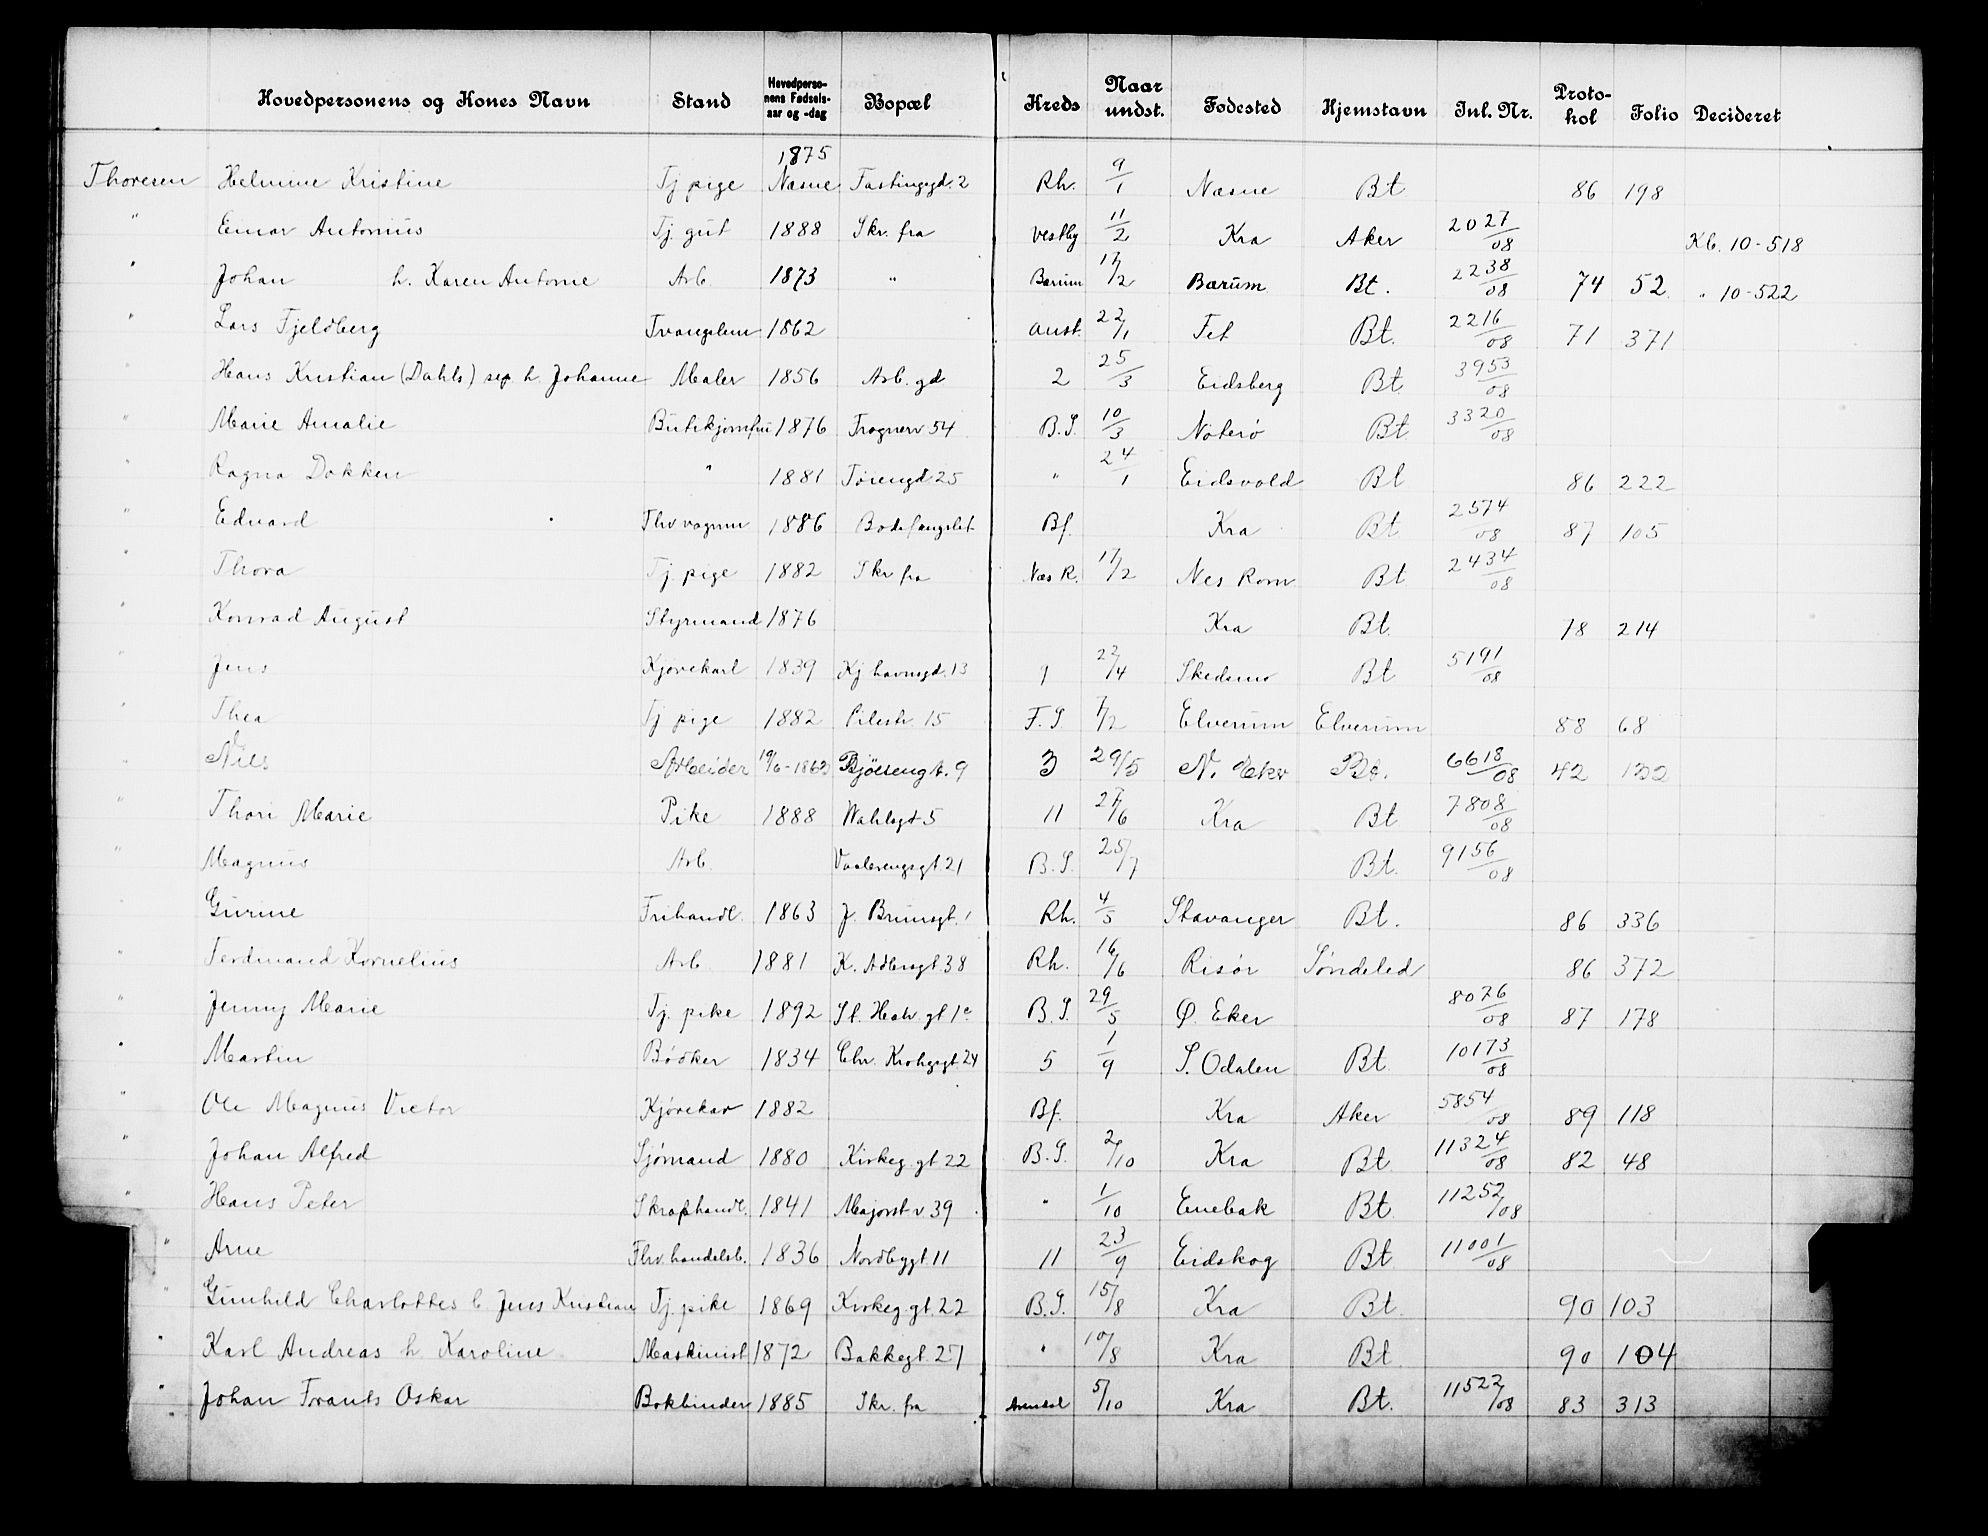 Hovedpersonens og Kones Navn Stand Hovedperso-nens Fødsels-aar og -dag Bopæl Kreds Naar undst. Fødested Hjemstavn Inl. Nr. Proto-kol Folio Decideret
1875
Thoresen Helmine Kristine Tj pige Næsne Tostingsgd. 2 Rh. 9/1 Næsne Bt 86 198
" Einar Antonius Tj. gut 1888 Skr. fra Vestby 11/2 Kra Aker 2027/08 Kb. 10-518
" Johan h. Karen Antonie Arb 1873 " Bærum 17/2 Bærum Bt. 2238/08 74 52 " 10-522
" Lars Fjeldberg Tvangslem 1862 anst. 22/1 Fet Bt. 2216/08 71 371
Hans Kristian (Dahls) sep. h. Johanne Maler 1856 Arb. gd 2 25/3 Eidsberg Bt. 3953/08
" Marie Amalie Butikjomfru 1876 Frognerv 54 B.S. 10/3 Nøterø Bt 3320/08
" Ragna Dokken " 1881 Tøiengd 25 " 24/1 Eidsvold Bt 86 222
" Edvard Fhv vognm 1886 Bodsfængslet Bf. Kra Bt 2574/08 87 105
" Thora Tj. pige 1882 Skr fra Nes R. 17/2 Nes Rom. Bt 2434/08
" Konrad August Styrmand 1876 Kra Bt. 78 214
" Jens Kjørekarl 1839 Kj havnsgd. 13 9 22/4 Skedsmo Bt 5191/08
" Thea Tj pige 1882 Pilestr. 15 F.S 7/2 Elverum Elverum 88 68
" Nils Arbeider 19/6-1863 Bjølsengt. 9 3 29/5 N. Eker Bt. 6618/08 42 130
" Thori Marie Pike 1888 Wahlsgt 5 11 27/6 Kra Bt 7808/08
" Magnus Arb. Vaalerengsgt. 21 B.S. 25/7 Bt. 9156/08
Gurine Frihandl. 1863 J. Brunsgt. 1 Rh. 4/5 Stavanger Bt. 86 336
" Ferdinand Kornelius Arb 1881 K. Adlersgt. 38 Rh. 16/6 Risør Søndeled 86 372
" Jenny Marie Tj. pike 1892 St. Halv. gt 1c B.S. 29/5 Ø. Eker 8076/08 87 178
" Martin Bødker 1834 Chr. Krohgsgt. 24 5 1/9 S. Odalen Bt. 10173/08
" Ole Magnus Victor Kjørekar 1882 Bf. Kra Aker 5854/08 89 118
" Johan Alfred Sjømand 1880 Kirkeg. gt 22 B.S. 2/10 Kra Bt 11324/08 82 48
" Hans Peter Skraphandl. 1841 Majorst v 39 " 1/10 Enebak Bt. 11252/08
" Arne Fhv. handelsb. 1836 Nordbygt. 11 11 23/9 Eidskog Bt 11001/08
" Gunhild Charlottes b Jens Kristian Tj. pike 1869 Kirkeg gt. 22 B.S. 15/8 Kra Bt. 90 103
" Karl Andreas h. Karoline Maskinist 1872 Bakkegt. 27 " 10/8 Kra Bt 90 104
" Johan Frants Oskar Bokbinder 1885 Skr. fra Arendal 5/10 Kra Bt. 11522/08 83 313